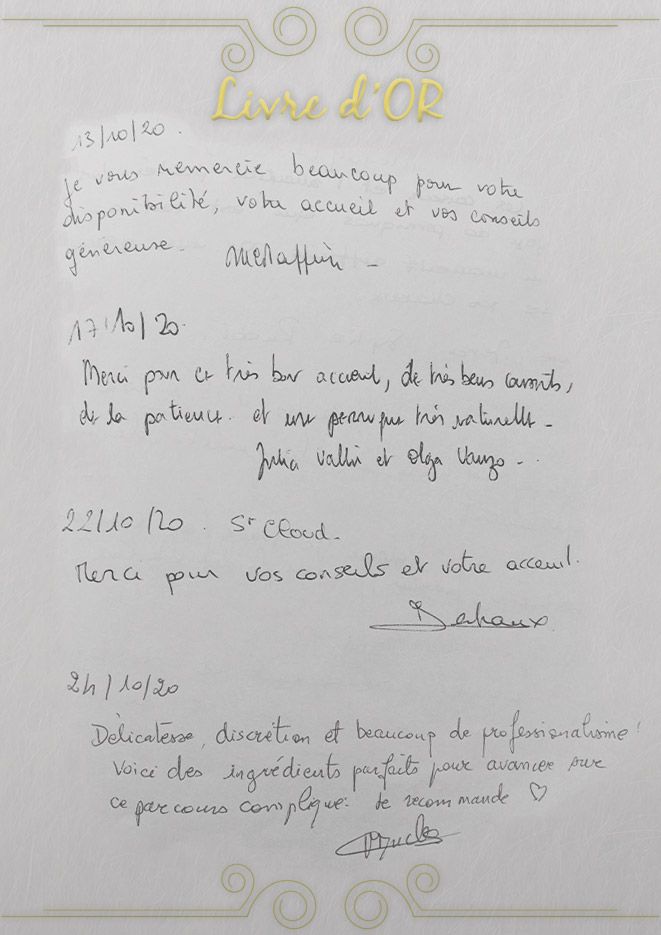 Livre d'OR
13/10/20.
Je vous remercie beaucoup pour votre
disponibilité, votre accueil et vos conseils
généreuse.
17/10/20.
Merci pour ce très bon accueil, de très bons conseils,
de la patience. et une perruque très naturelle -
Julia Vallin et Olga
22/10/20. St Cloud.
Merci pour vos conseils et votre acceuil.
24/10/20
Délicatesse, discrétion et beaucoup de professionalisme!
Voici des ingrédients parfaits pour avancer sur
ce parcours compliqué. Je recommande ♡